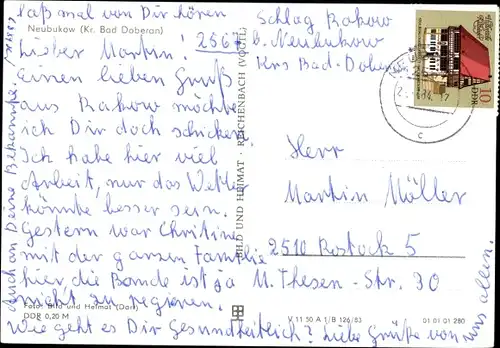 laß mal von Dir hören
Neubukow (Kr. Bad Doberan)
Lieber Martin.
Einen lieben Gruß
aus Rakow möchte
ich Dir doch schicken.
Ich habe hier viel
Arbeit, nur das Wetter
könnte besser sein.
Gestern war Christine
mit der ganzen Familie
hier, die Bande ist ja
nicht zu regieren.
Foto: Bild und Heimat (Dart)
DDR 0,20 M
Wie geht es Dir Gesundheitlich? Liebe Grüße von uns allen.
auch an Deine Bekannte
BILD UND HEIMAT · REICHENBACH (VOGTL)
V 11 50 A 1/B 126/83
01 01 01 280
Schlag Rakow
2567 b. Neubukow
Krs Bad-Doberan
10
DDR
Herr
Martin Möller
2510 Rostock 5
M. Thesen-Str. 30